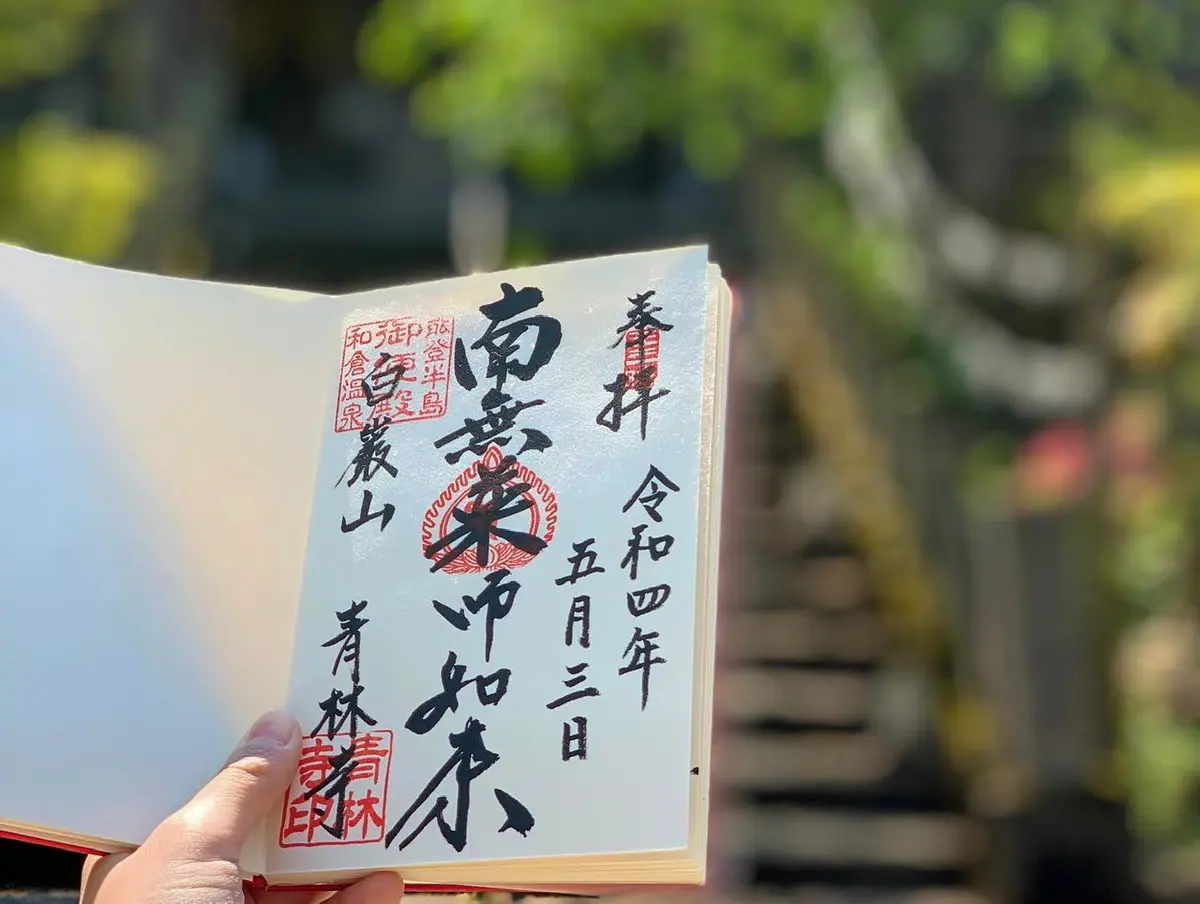 奉拝
令和四年
五月三日
南無薬師如来
白巌山
青林寺
能登半島
御便殿
和倉温泉
青林
寺印